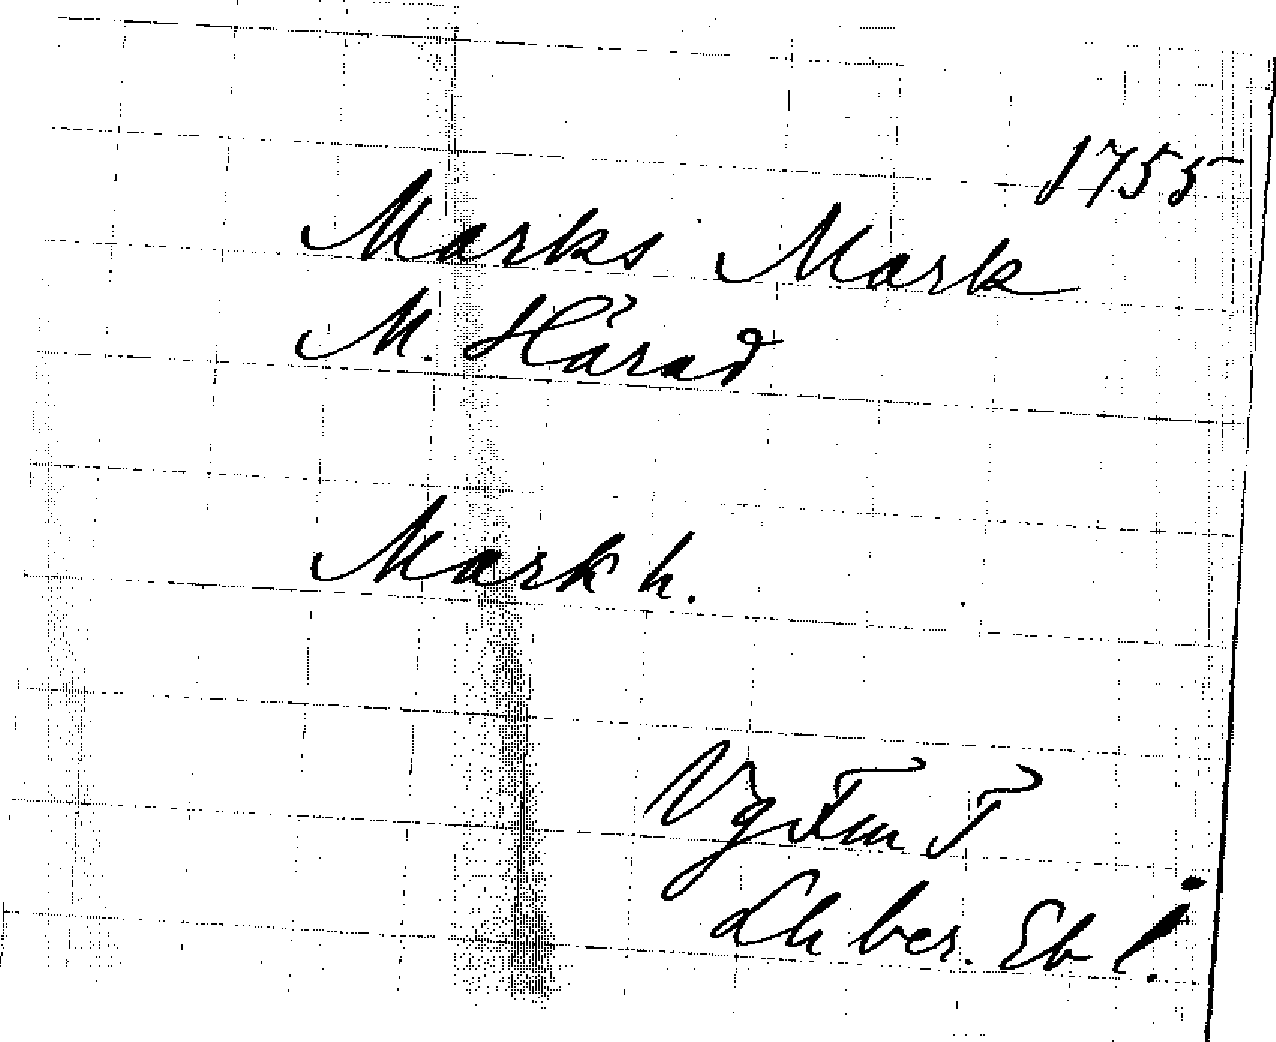 1755
Marks Mark
M. Härad
Mark h.
Vg Fm T
Lh ber. Eb l.